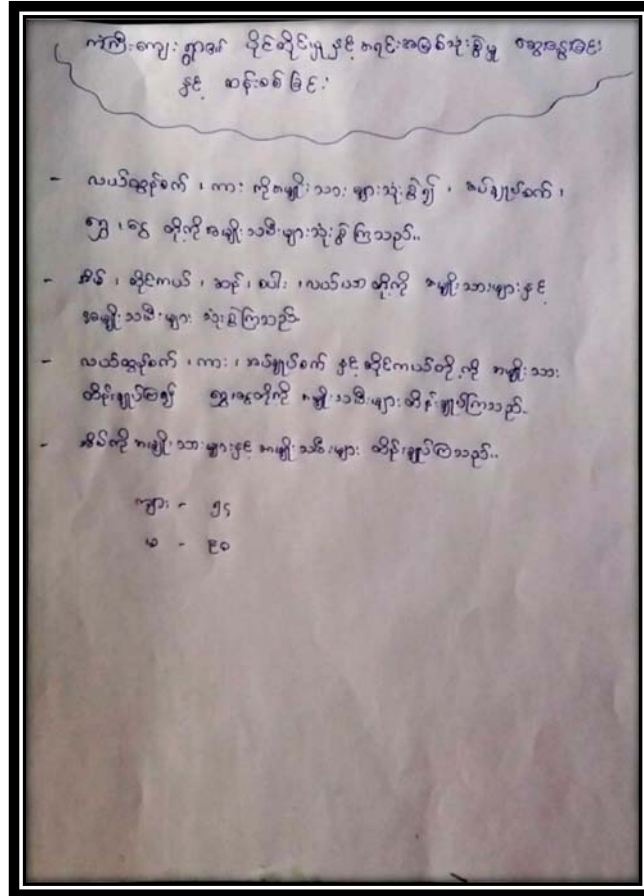 ကံကြီးကျေးရွာ၏ ပိုင်ဆိုင်မှုနှင့် အရင်းအမြစ်သုံးစွဲမှု ဆွေးနွေးခြင်း
နှင့် ဆန်းစစ်ခြင်း
- လယ်ထွန်စက် ၊ ကား ကိုအမျိုးသား များသုံးစွဲ၍ ၊ အပ်ချုပ်စက် ၊
ရွှေ ၊ ငွေ တို့ကိုအမျိုးသမီးများသုံးစွဲကြသည်..
- အိမ် ၊ ဆိုင်ကယ် ၊ ဆန် ၊ စပါး ၊ လယ်ယာ တို့ကို အမျိုးသားများနှင့်
အမျိုးသမီးများ သုံးစွဲကြသည်.
- လယ်ထွန်စက် ၊ ကား ၊ အပ်ချုပ်စက် နှင့် ဆိုင်ကယ်တို့ကို အမျိုးသား
ထိန်းချုပ်၍ ရွှေ၊ငွေတို့ကို အမျိုးသမီးများထိန်းချုပ်ကြသည်..
- အိမ်ကို အမျိုးသားများနှင့် အမျိုးသမီးများ ထိန်းချုပ်သည်..
ကျား - ၅၄
မ - ၉၀